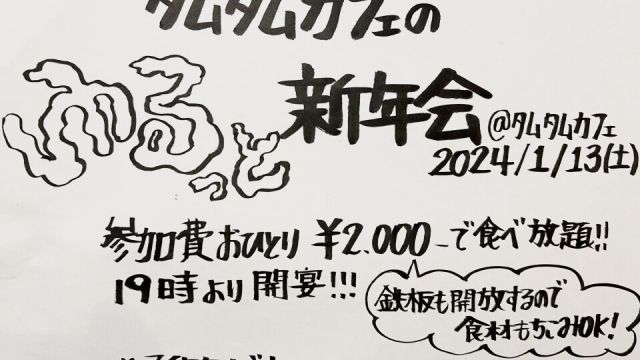 タムタムカフェの
ゆるっと新年会@タムタムカフェ
2024/1/13(土)
参加費おひとり¥2,000-で食べ放題!!
19時より開宴!!!
鉄板も開放するので
食材もちこみOK!